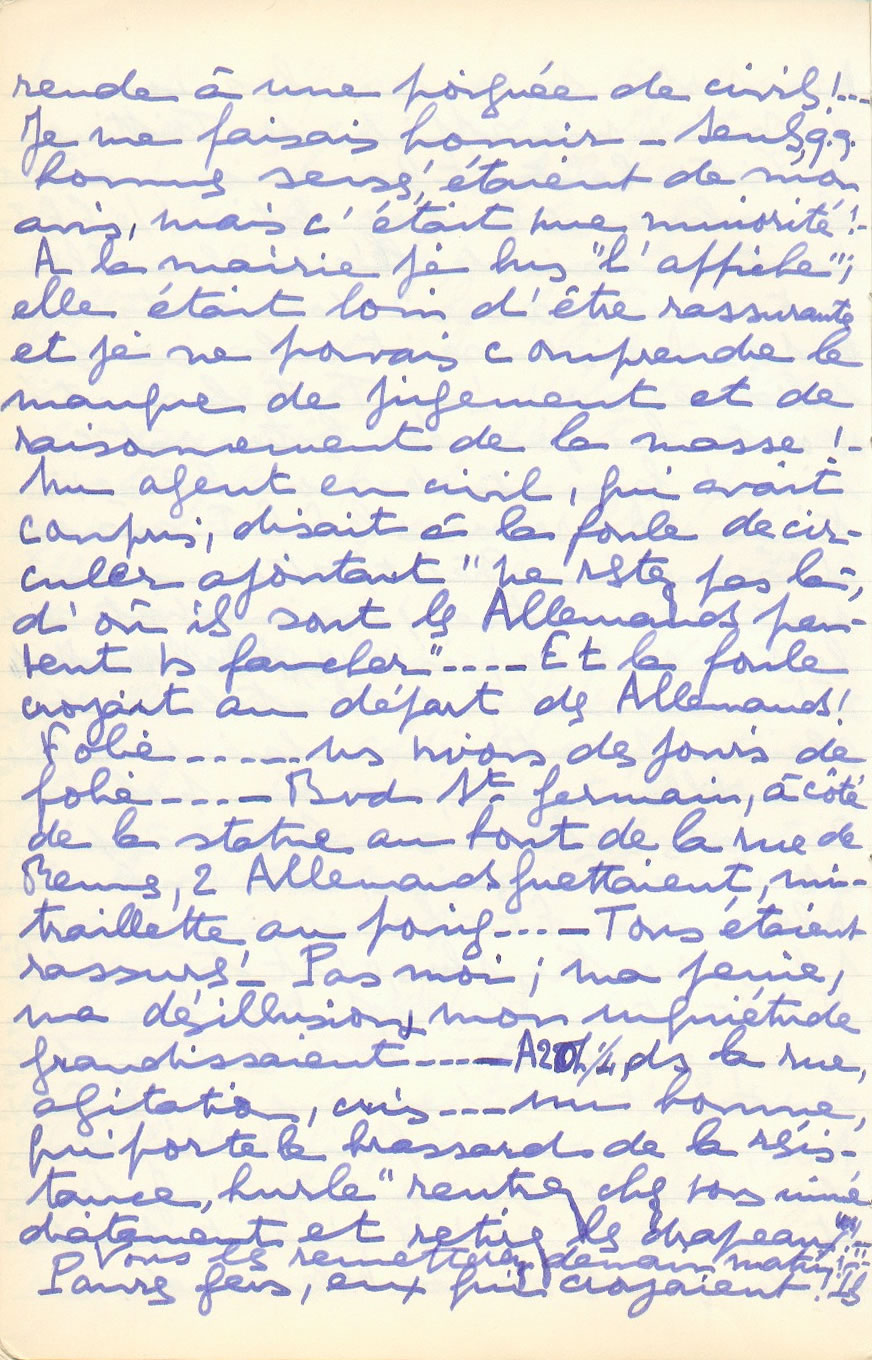 rende à une poignée de civils!...
Je me faisais honnir – Seuls, q.q.
hommes sensés, étaient de mon
avis, mais c'était une minorité!-
A la mairie je lus "l'affiche";
elle était loin d'être rassurante
et je ne pouvais comprendre le
manque de jugement et de
raisonnement de la masse!-
Un agent en civil, qui avait
compris, disait à la foule de cir-
culer ajoutant "ne restez pas là,
d'où ils sont les Allemands peu-
vent vs faucher"---- Et la foule
croyait au départ des Allemands!
Folie ------ ns vivions des jours de
folie ----- Bvd St Germain, à côté
de la statue au bout de la rue de
Rennes, 2 Allemands guettaient, mi-
traillette au poing---- Tous étaient
rassurés – Pas moi; ma peine,
ma désillusion, mon inquiétude
grandissaient ---- A 20h 1/4, ds la rue,
agitation, cris --- un homme,
qui porte le brassard de la résis-
tance, hurle "rentrez chez vous immé-
diatement et retirez les drapeaux"!-
Vous les remettrez demain matin!-"
Pauvres gens, eux qui croyaient! Ils